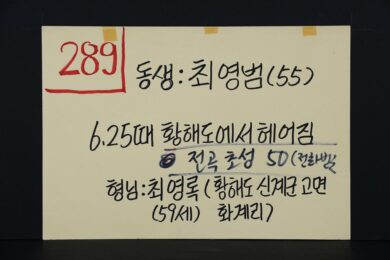 289
동생:최영범(55)
6.25때 황해도에서 헤어짐
전곡 초성 50
형님:최영록(황해도 신계군 고면
(59세) 화계리)